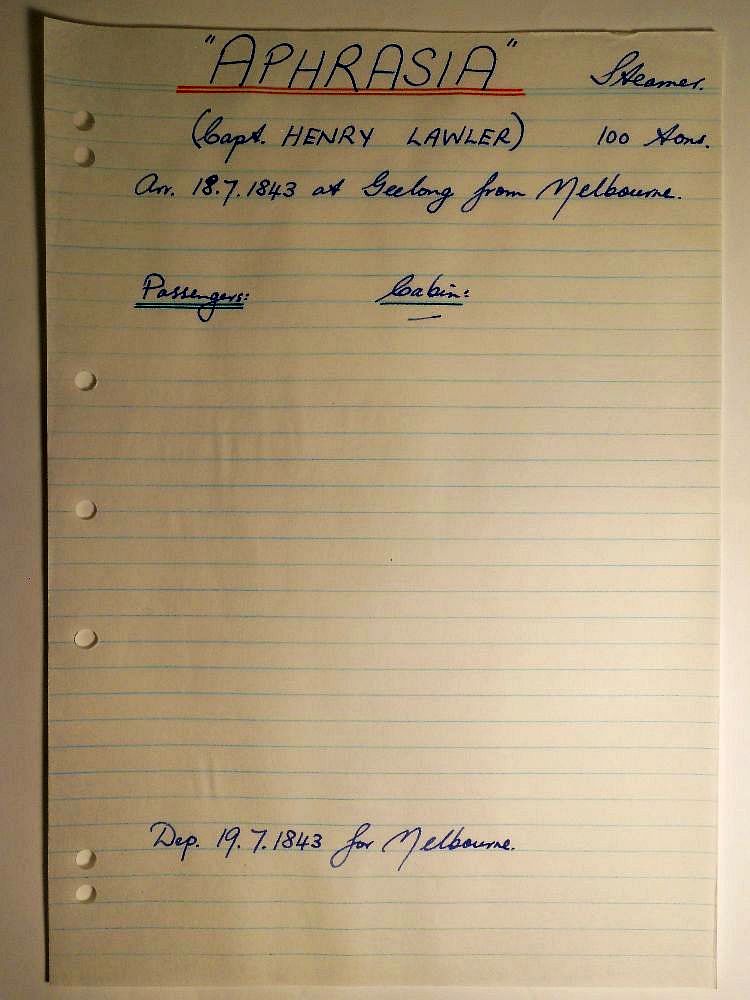 "APHRASIA" Steamer.
(Capt. HENRY LAWLER) 100 tons.
Arr. 18.7.1843 at Geelong from Melbourne.
Passengers: Cabin:
—
Dep. 19.7.1843 for Melbourne.